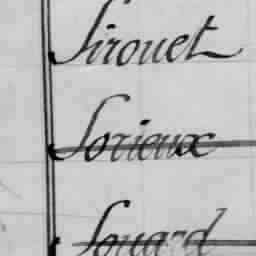 Sirouet
Sorieux
Souard